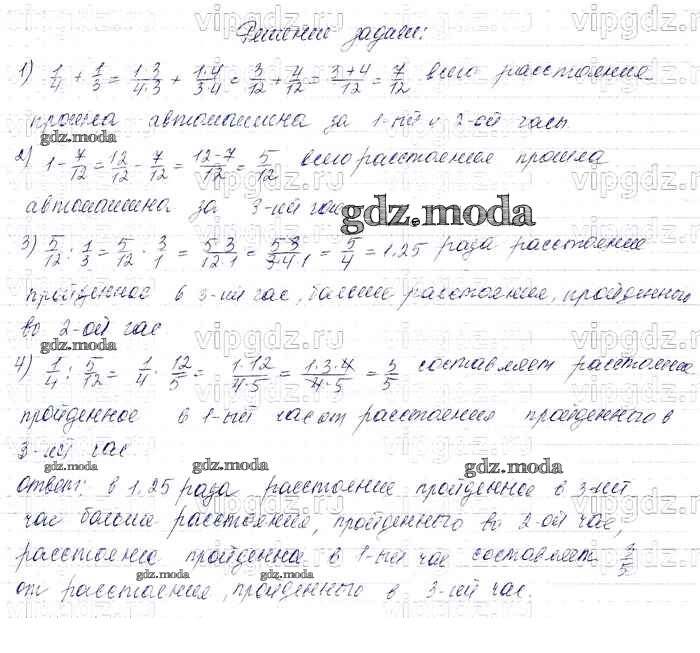 Решений задачи:
1) 1/4 + 1/3 = 1·3/4·3 + 1·4/3·4 = 3/12 + 4/12 = 3+4/12 = 7/12 всего расстояние
прошла автомашина за 1-ый и 2-ой часы
gdz.moda
2) 1 - 7/12 = 12/12 - 7/12 = 12-7/12 = 5/12 всего расстояния прошла
автомашина за 3-ий час
gdz.moda
3) 5/12 : 1/3 = 5/12 · 3/1 = 5·3/12·1 = 5·3/3·4·1 = 5/4 = 1.25 раза расстояние
пройденное в 3-ий час, больше расстояние, пройденного
во 2-ой час
gdz.moda
4) 1/4 : 5/12 = 1/4 · 12/5 = 1·12/4·5 = 1·3·4/4·5 = 3/5 составляет расстояние
пройденное в 1-ый час от расстояния пройденного в
3-ий час
gdz.moda gdz.moda
ответ: в 1.25 раза расстояние пройденное в 3-ий
час больше расстояние, пройденного во 2-ой час,
расстояние пройденна в 1-ый час составляет 3/5
gdz.moda gdz.moda
от расстояния, пройденного в 3-ий час.
vipgdz.ru